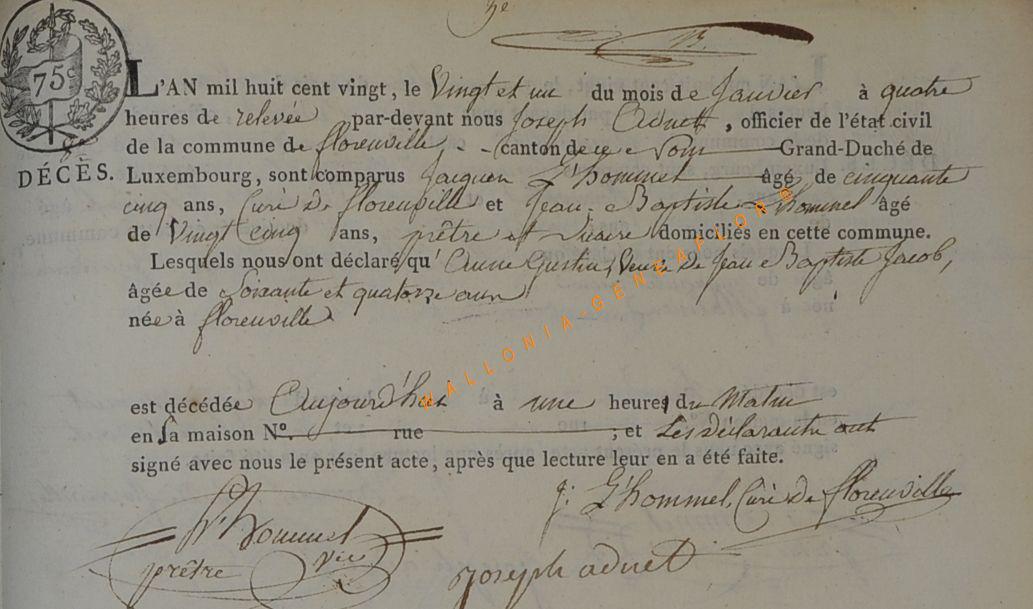 3e
75
L'AN mil huit cent vingt, le Vingt et un du mois de Janvier à quatre
heures de relevée par-devant nous Joseph Adnet, officier de l'état civil
de la commune de florenville canton de ce Nom Grand-Duché de
DÉCÈS. Luxembourg, sont comparus Jacques L'hommel âgé de cinquante
cinq ans, Curé de florenville et Jean-Baptiste L'hommel âgé
de Vingt Cinq ans, prêtre et vicaire domiciliés en cette commune.
Lesquels nous ont déclaré qu'Anne Gustin, Veuve de Jean Baptiste Jacob,
âgée de Soixante et quatorze ans
née à florenville
est décédée Aujourd'hui à une heure du Matin
en sa maison N°. rue ; et Les déclarants ont
signé avec nous le présent acte, après que lecture leur en a été faite.
L'hommel
prêtre vic
j: L'hommel, Curé de florenville
joseph adnet
WALLONIA-GENEAFLORE